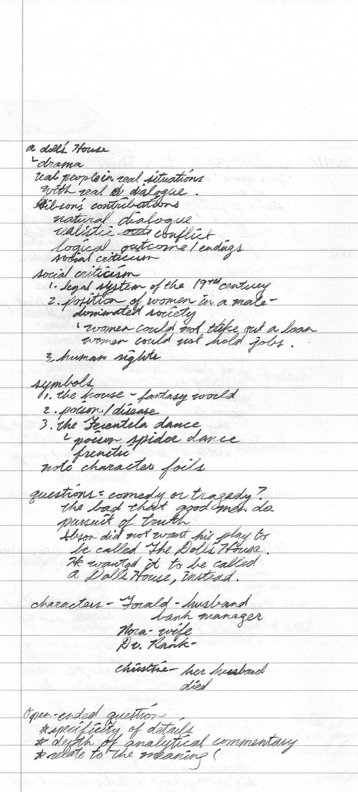 A doll's House
└ drama
real people in real situations
with real dialogue.
Ibsen's contributions
natural dialogue
realistic conflict
logical outcome/endings
social criticism
social criticism
1. legal system of the 19th century
2. position of women in a male-
dominated society
└ women could not take out a loan
women could not hold jobs.
3. human rights
symbols
1. the house - fantasy world
2. poison/disease
3. the Terentela dance
└ poison spider dance
frenetic
note character foils
questions: comedy or tragedy?
the bad that good men do
pursuit of truth
Ibsen did not want his play to
be called The Doll's House.
He wanted it to be called
A Doll's House, instead.
characters - Torald - husband
bank manager
Nora - wife
Dr. Rank -
Christine - her husband
died
Open-ended question
* specificity of details
* depth of analytical commentary
* relate to the meaning (